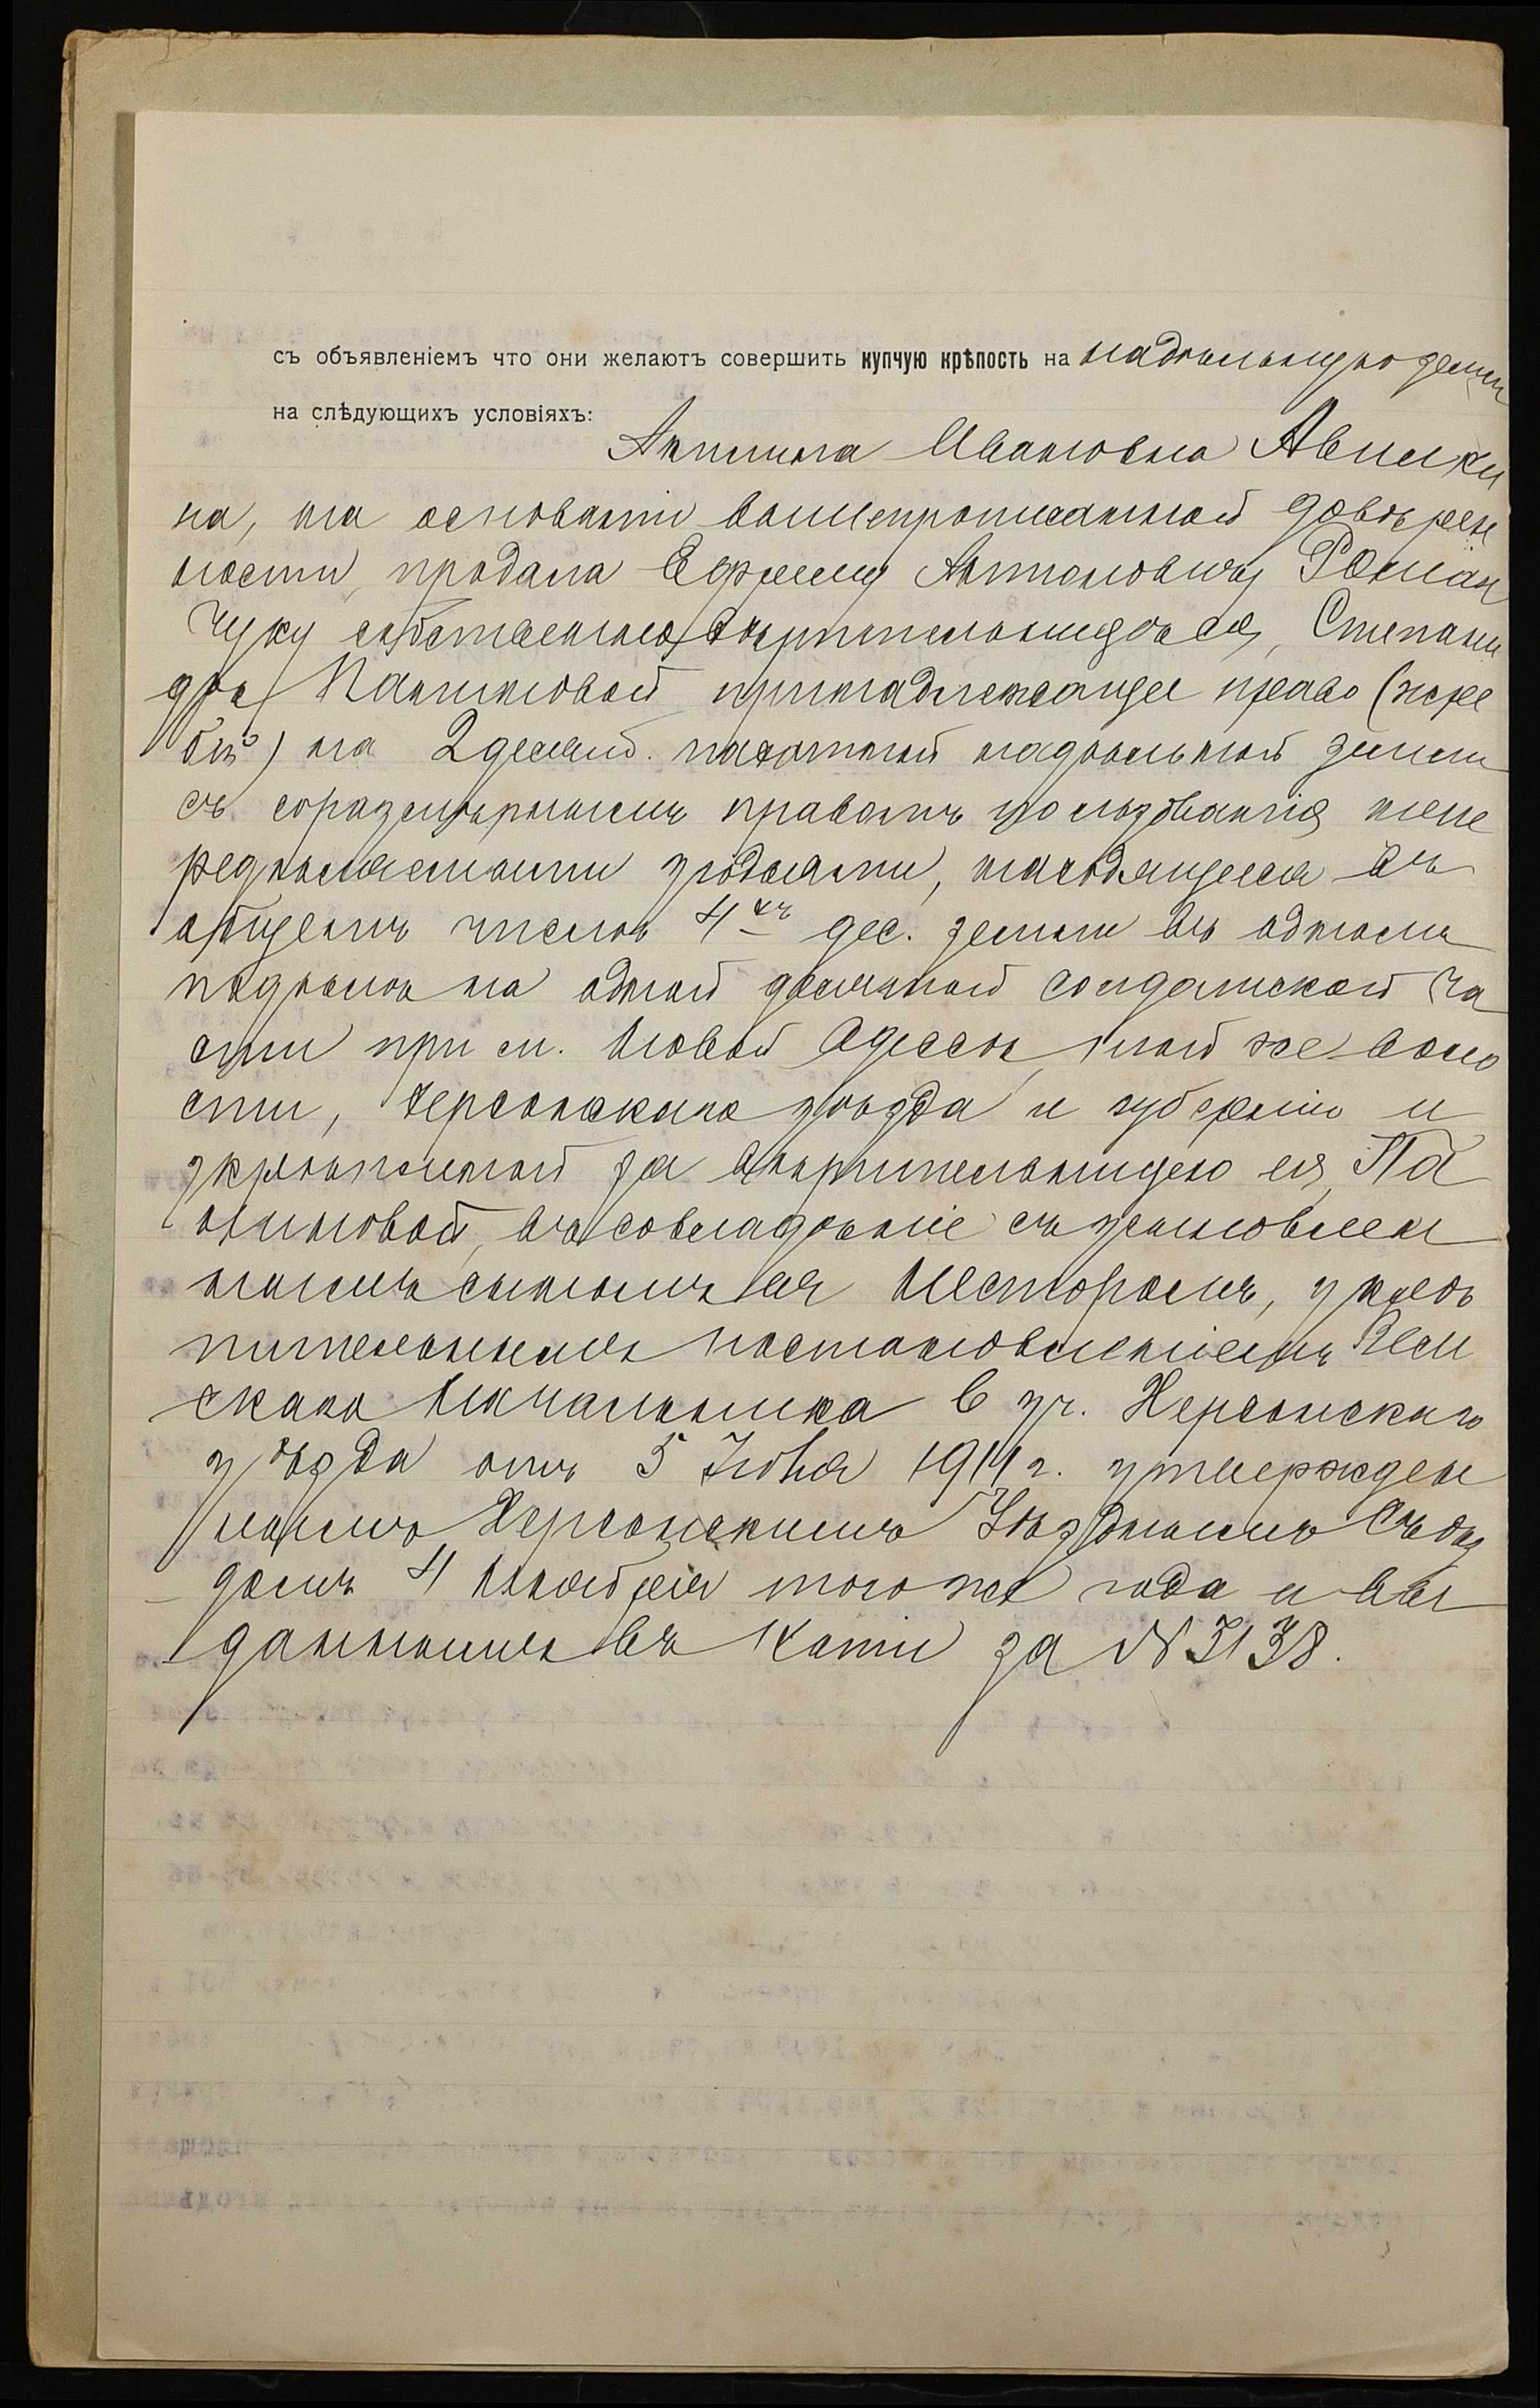 съ объявленіемъ что они желаютъ совершить купчую крѣпость на надѣльную земл
на слѣдующихъ условіяхъ:
Ивановна
на, на основаніи вышепрописанной довѣрен
ности, продала Ефрему Антоновичу Роман
чуку собственно довѣрительницѣ ея, Степани
дѣ Паниновой принадлежащее право (жре
бій) на 2 десят. пахотной надѣльной земли
съ соразмѣрнымъ правомъ пользованія непе
редѣляемыми угодіями, находящееся въ
общемъ числѣ 4хъ дес. земли въ одномъ
надѣлѣ на одной солдатской ча
сти при м. Новой Одессѣ, той же воло
сти, Херсонскаго уѣзда и губерніи и
укрѣпленной за довѣрительницею ея, Па
ниновой, въ совладѣніе съ усыновлен
нымъ сыномъ ея Несторомъ, укрѣ
пительнымъ постановленіемъ Зем
скаго Начальника 6 уч. Херсонскаго
уѣзда отъ 5 Іюня 1914 г. утвержден
нымъ Херсонскимъ Уѣзднымъ Съѣз
домъ 4 Ноября того же года и вы
даннымъ въ копіи за № 3138.